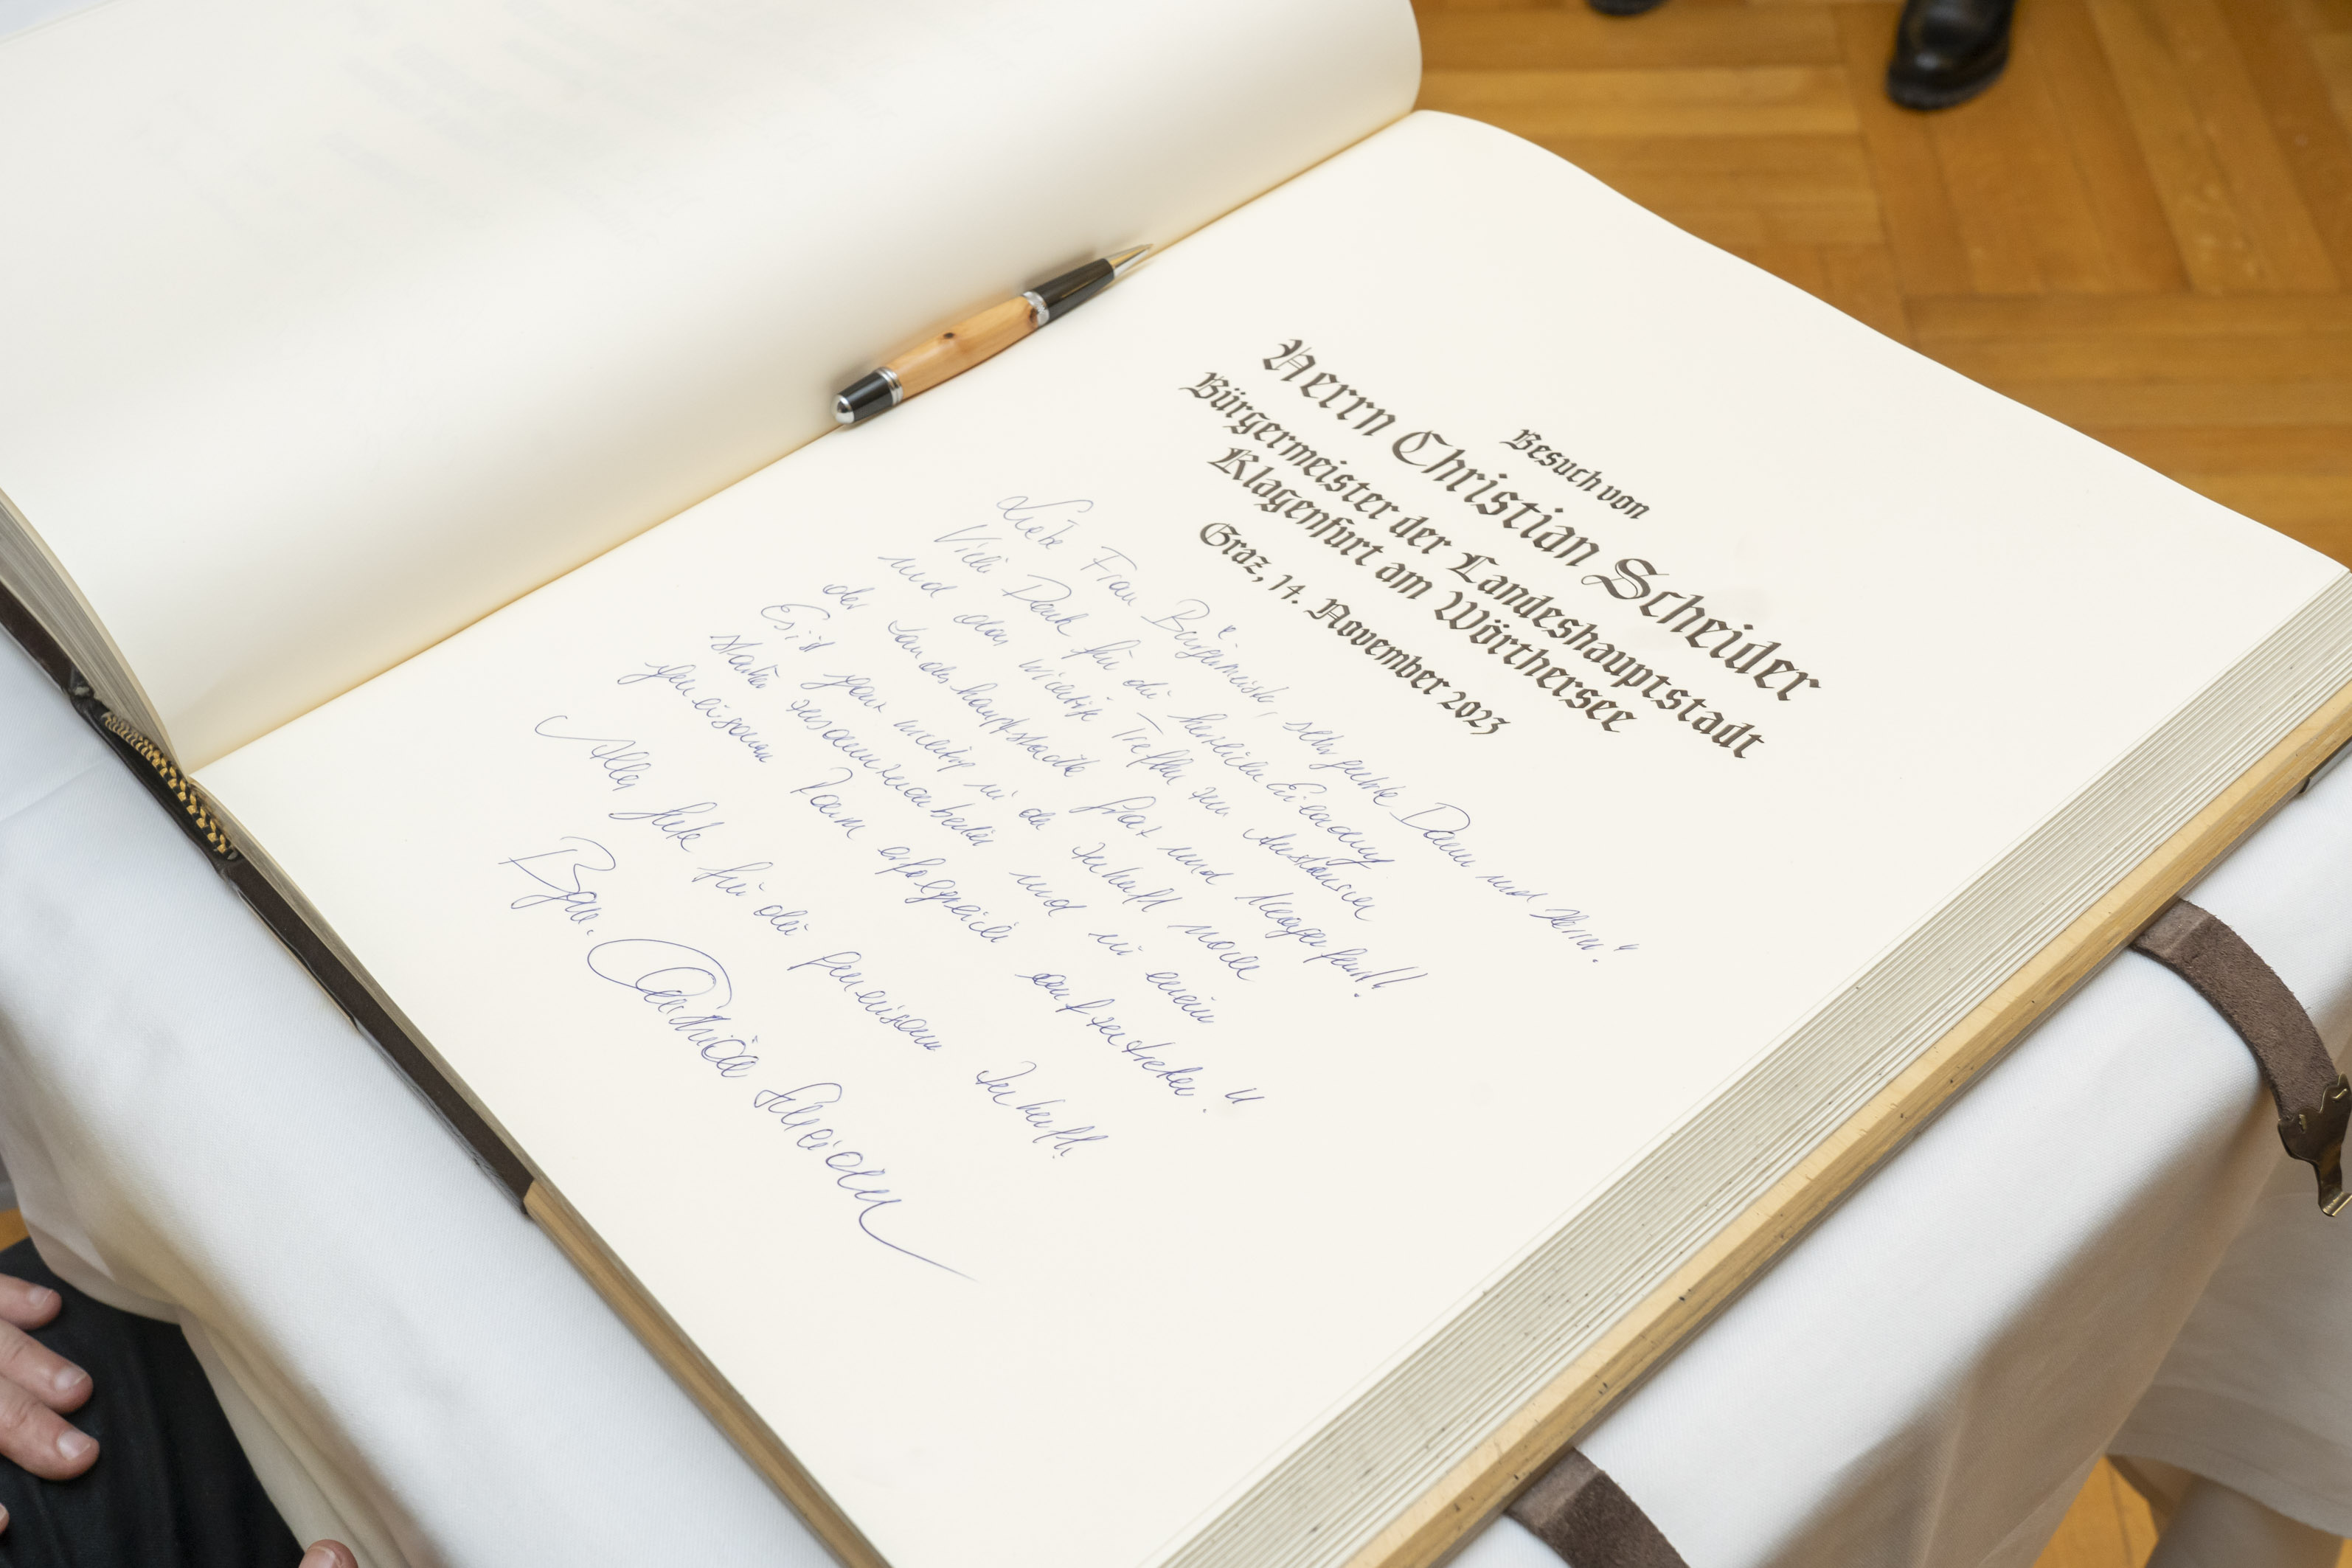 Besuch von
Herrn Christian Scheider
Bürgermeister der Landeshauptstadt
Klagenfurt am Wörthersee
Graz, 14. November 2023
Liebe Frau Bürgermeister, sehr geehrte Damen und Herrn!
Vielen Dank für die Einladung
und das wichtige Treffen zum Austausch
der Landeshauptstädte Graz und Klagenfurt!!
Es ist ganz wichtig in der Zukunft noch
stärker zusammenzuarbeiten und in einem
gemeinsamen Raum erfolgreich aufzutreten!!
Alles Gute für die gemeinsame Zukunft!
Bgm. Christian Scheider